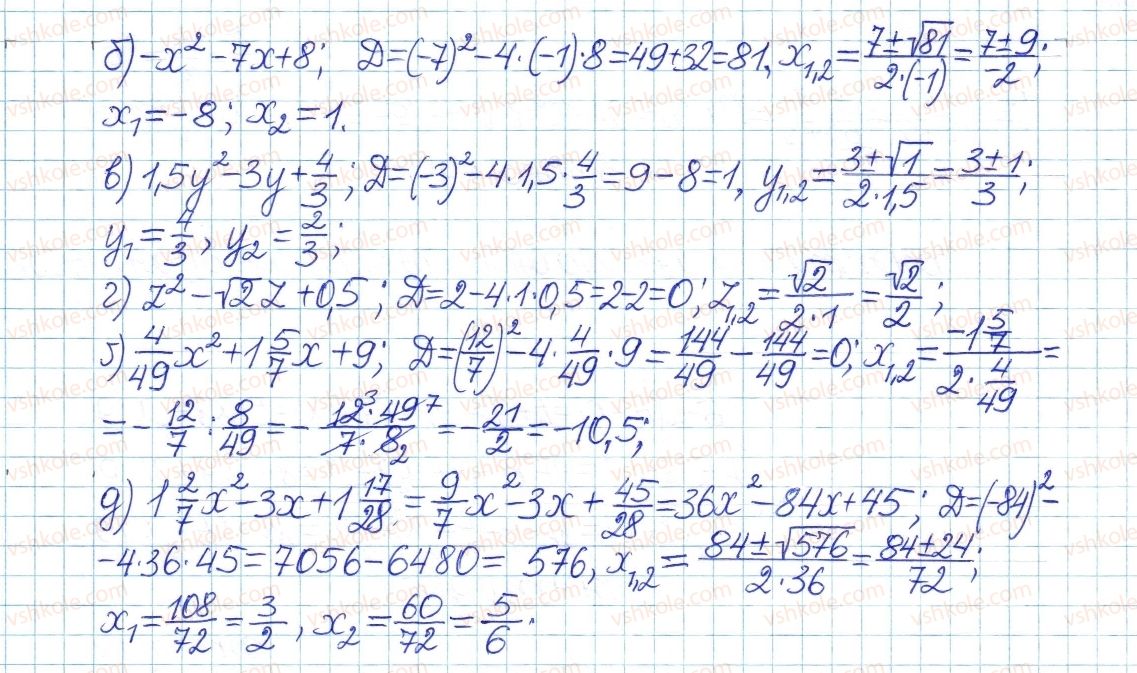 б) -x² - 7x + 8; Д = (-7)² - 4·(-1)·8 = 49 + 32 = 81, x₁,₂ = (7 ± √81)/(2·(-1)) = (7 ± 9)/(-2);
x₁ = -8; x₂ = 1.
в) 1,5y² - 3y + 4/3; Д = (-3)² - 4·1,5·4/3 = 9 - 8 = 1, y₁,₂ = (3 ± √1)/(2·1,5) = (3 ± 1)/3;
y₁ = 4/3, y₂ = 2/3;
г) z² - √2 z + 0,5; Д = 2 - 4·1·0,5 = 2 - 2 = 0; z₁,₂ = √2/(2·1) = √2/2;
ґ) 4/49 x² + 1 5/7 x + 9; Д = (12/7)² - 4·4/49·9 = 144/49 - 144/49 = 0; x₁,₂ = (-1 5/7)/(2·4/49) =
= -12/7 : 8/49 = -(12³·49⁷)/(7·8₂) = -21/2 = -10,5;
д) 1 2/7 x² - 3x + 1 17/28 = 9/7 x² - 3x + 45/28 = 36x² - 84x + 45; Д = (-84)² -
-4·36·45 = 7056 - 6480 = 576, x₁,₂ = (84 ± √576)/(2·36) = (84 ± 24)/72;
x₁ = 108/72 = 3/2, x₂ = 60/72 = 5/6.